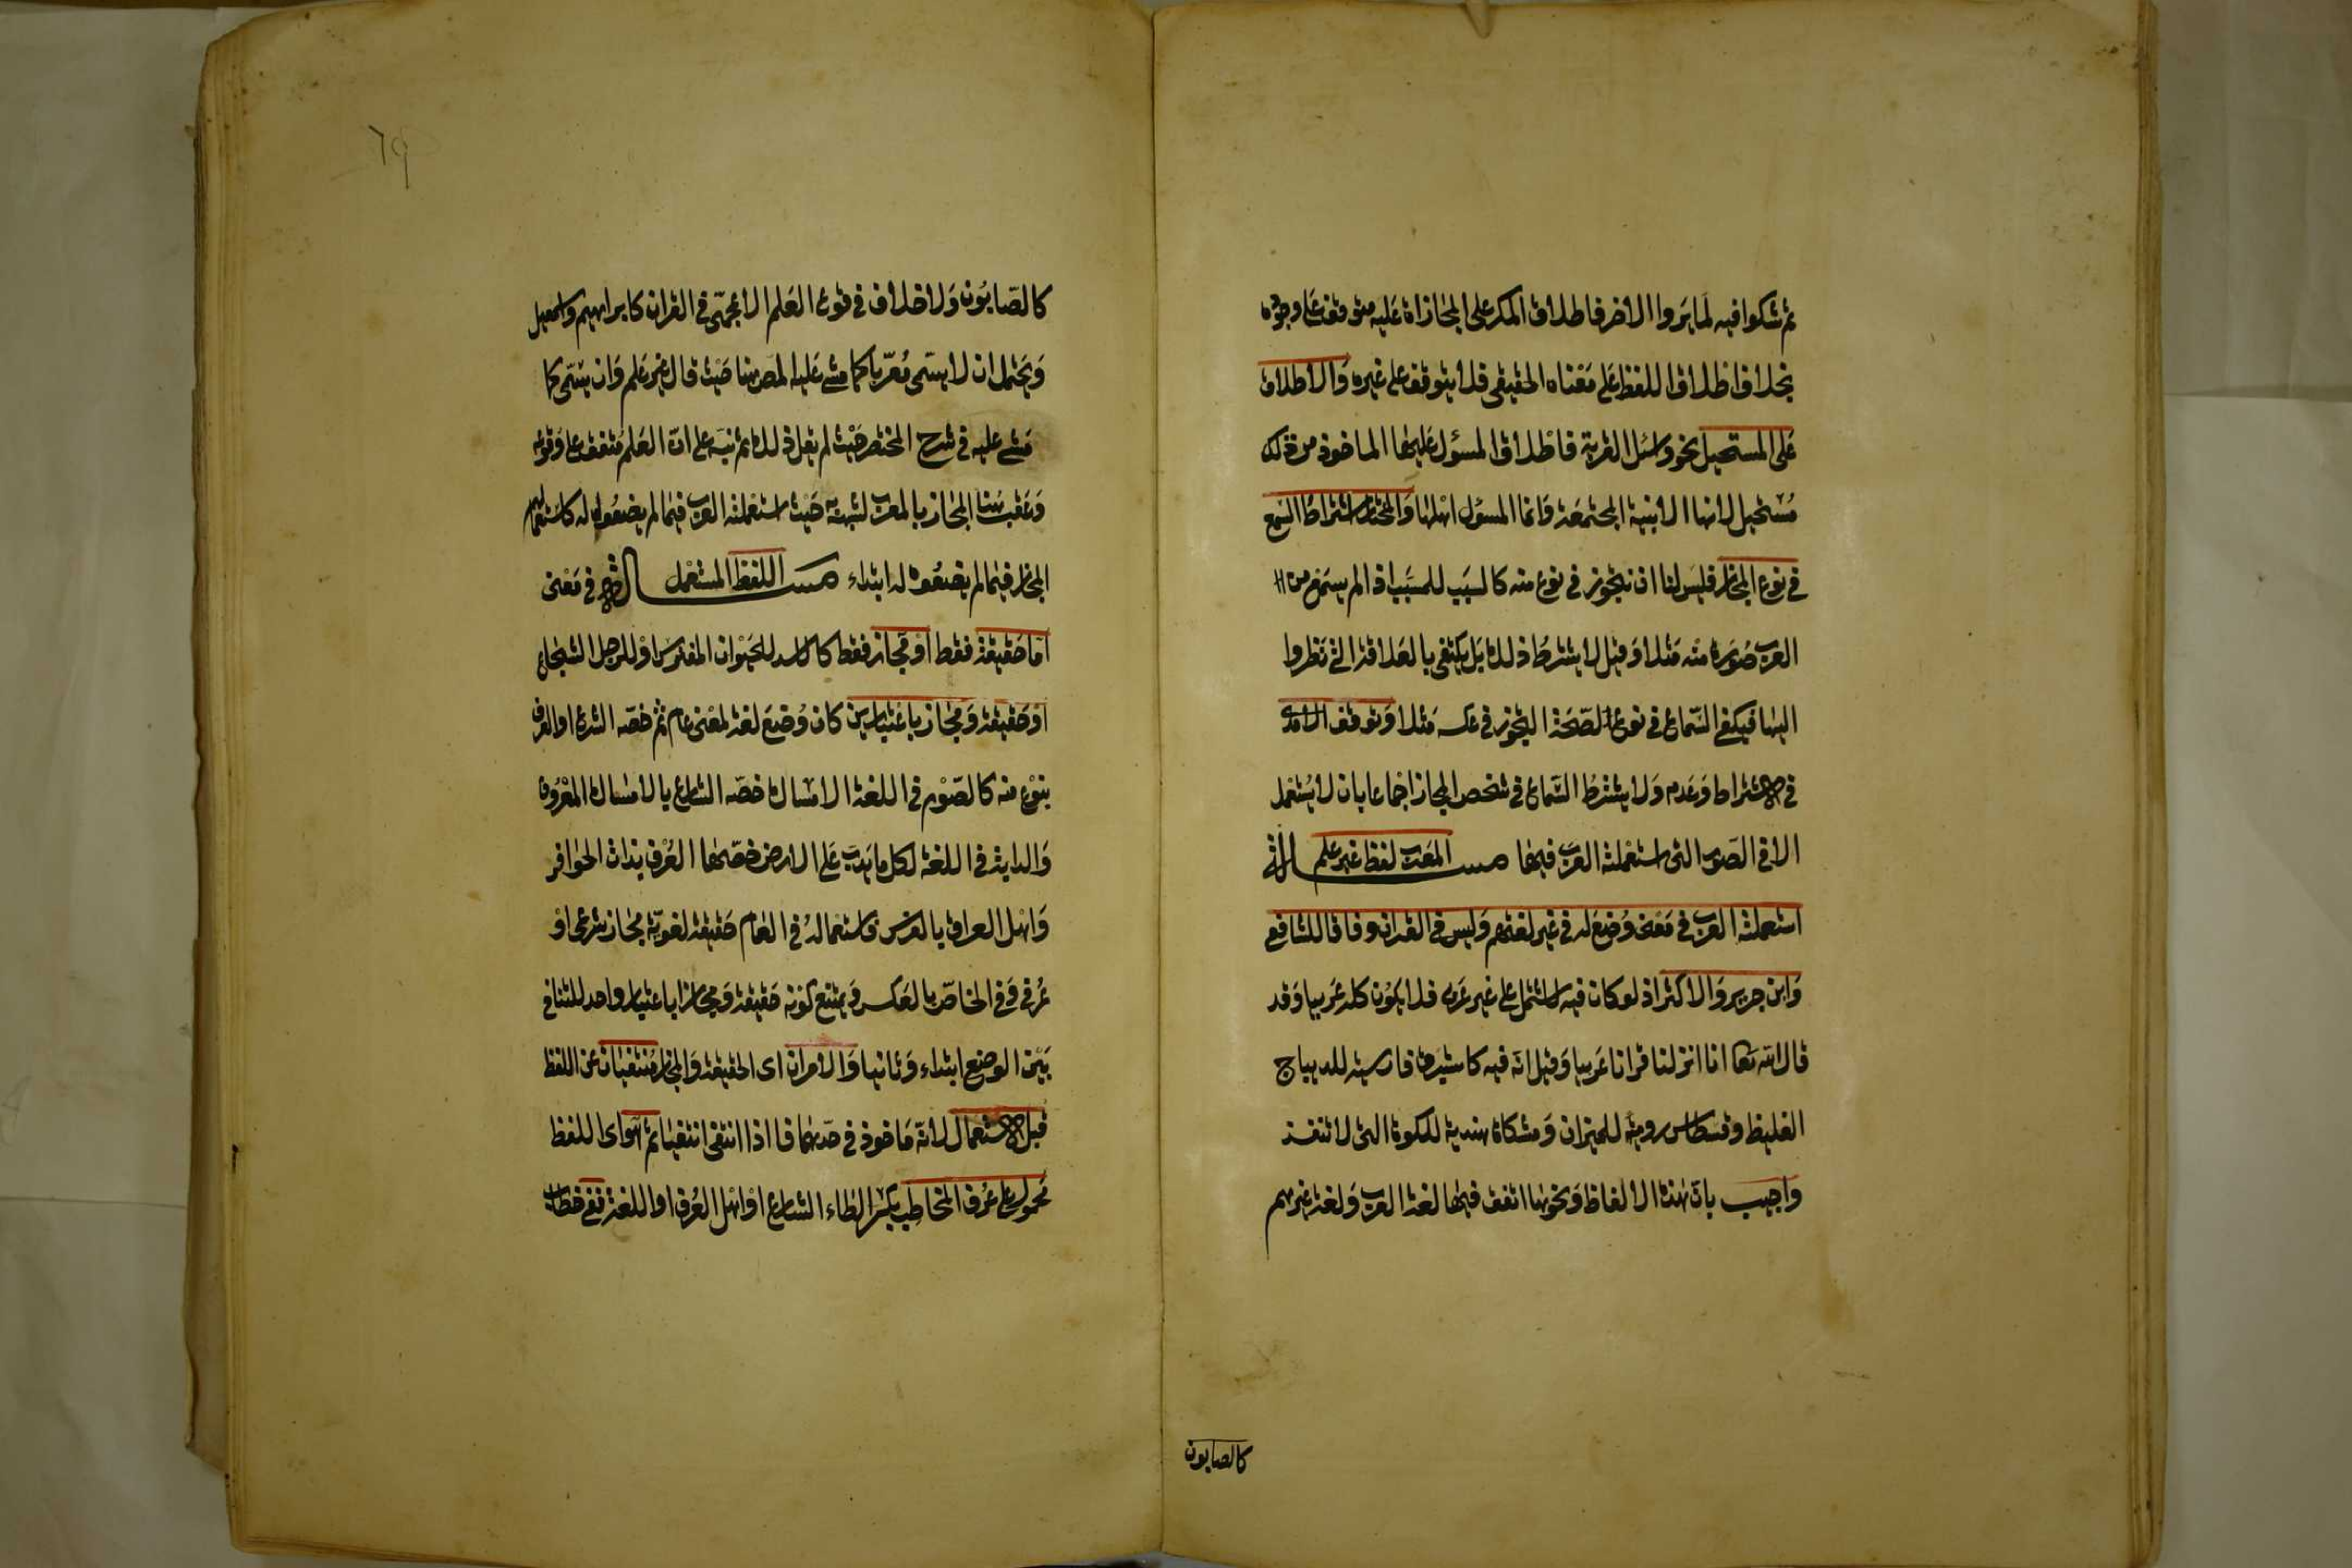 ثم شكوا فيه لما يروا الاخر فاطلاق المكر على المجازاة عليه متوقف على وجوده
بخلاف اطلاق اللفظ على معناه الحقيقي فلا يتوقف على غيره والاطلاق
على المستحيل نحو واسئل القرية فاطلاق المسؤل عليها الماخوذ من ذلك
مستحيل لانها الابنية المجتمعة وانما المسؤل اهلها والمختار اشتراط السمع
في نوع المجاز فليس لنا ان نتجوز في نوع منه كالسبب للمسبب اذا لم يسمع من
العرب صورة منه مثلا وقيل لا يشترط ذلك بل يكتفى بالعلاقة التي نظروا
اليها فيكفي السماع في نوع لصحة التجوز في عكسه مثلا وتوقف الآمدي
في الاشتراط وعدمه ولا يشترط السماع في شخص المجاز اجماعا بان لا يستعمل
الا في الصور التي استعملته العرب فيها مسألة المعرب لفظ غير علم
استعملته العرب في معنى وضع له في غير لغتهم وليس في القران وفاقا للشافعي
وابن جرير والاكثر اذ لو كان فيه لاشتمل على غير عربي فلا يكون كله عربيا وقد
قال الله تعا انا انزلنا قرانا عربيا وقيل انه فيه كاستبرق فارسية للديباج
الغليظ وقسطاس رومية للميزان ومشكاة هندية للكوة التي لا تنفذ
واجيب بان هذه الالفاظ ونحوها اتفق فيها لغة العرب ولغة غيرهم
كالصابون
٦٩
كالصابون ولا خلاف في وقوع العلم الاعجمي في القران كابراهيم واسمعيل
ويحتمل ان لا يسمى معربا كما مشى عليه المص هنا حيث قال غير علم وان يسمى كما
مشى عليه في شرح المختصر حيث لم يقل ذلك ثم نبه على ان العلم متفق على وقوعه
وعقب هنا المجاز بالمعرب لشبهه به حيث استعملته العرب فيما لم يضعوه له كاستعمالهم
المجاز فيما لم يضعوه له ابتداء مسألة اللفظ المستعمل في معنى
اما حقيقة فقط او مجاز فقط كالاسد للحيوان المفترس او للرجل الشجاع
او حقيقة ومجاز باعتبارين كان وضع لغة لمعنى عام ثم خصه الشرع او العرف
بنوع منه كالصوم في اللغة الامساك خصه الشارع بالامساك المعروف
والدابة في اللغة لكل ما يدب على الارض خصها العرف بذات الحوافر
واهل العراق بالفرس فاستعماله في العام حقيقة لغوية مجاز شرعي او
عرفي وفي الخاص بالعكس ويمتنع كونه حقيقة ومجازا باعتبار واحد للتنافي
بين الوضع ابتداء وثانيا والامران اى الحقيقة والمجاز منتفيان عن اللفظ
قبل الاستعمال لانه ماخوذ في حدهما فاذا انتفى انتفيا ثم هو اى اللفظ
محمول على عرف المخاطب بكسر الطاء الشارع او اهل العرف او اللغة ففي خطاب